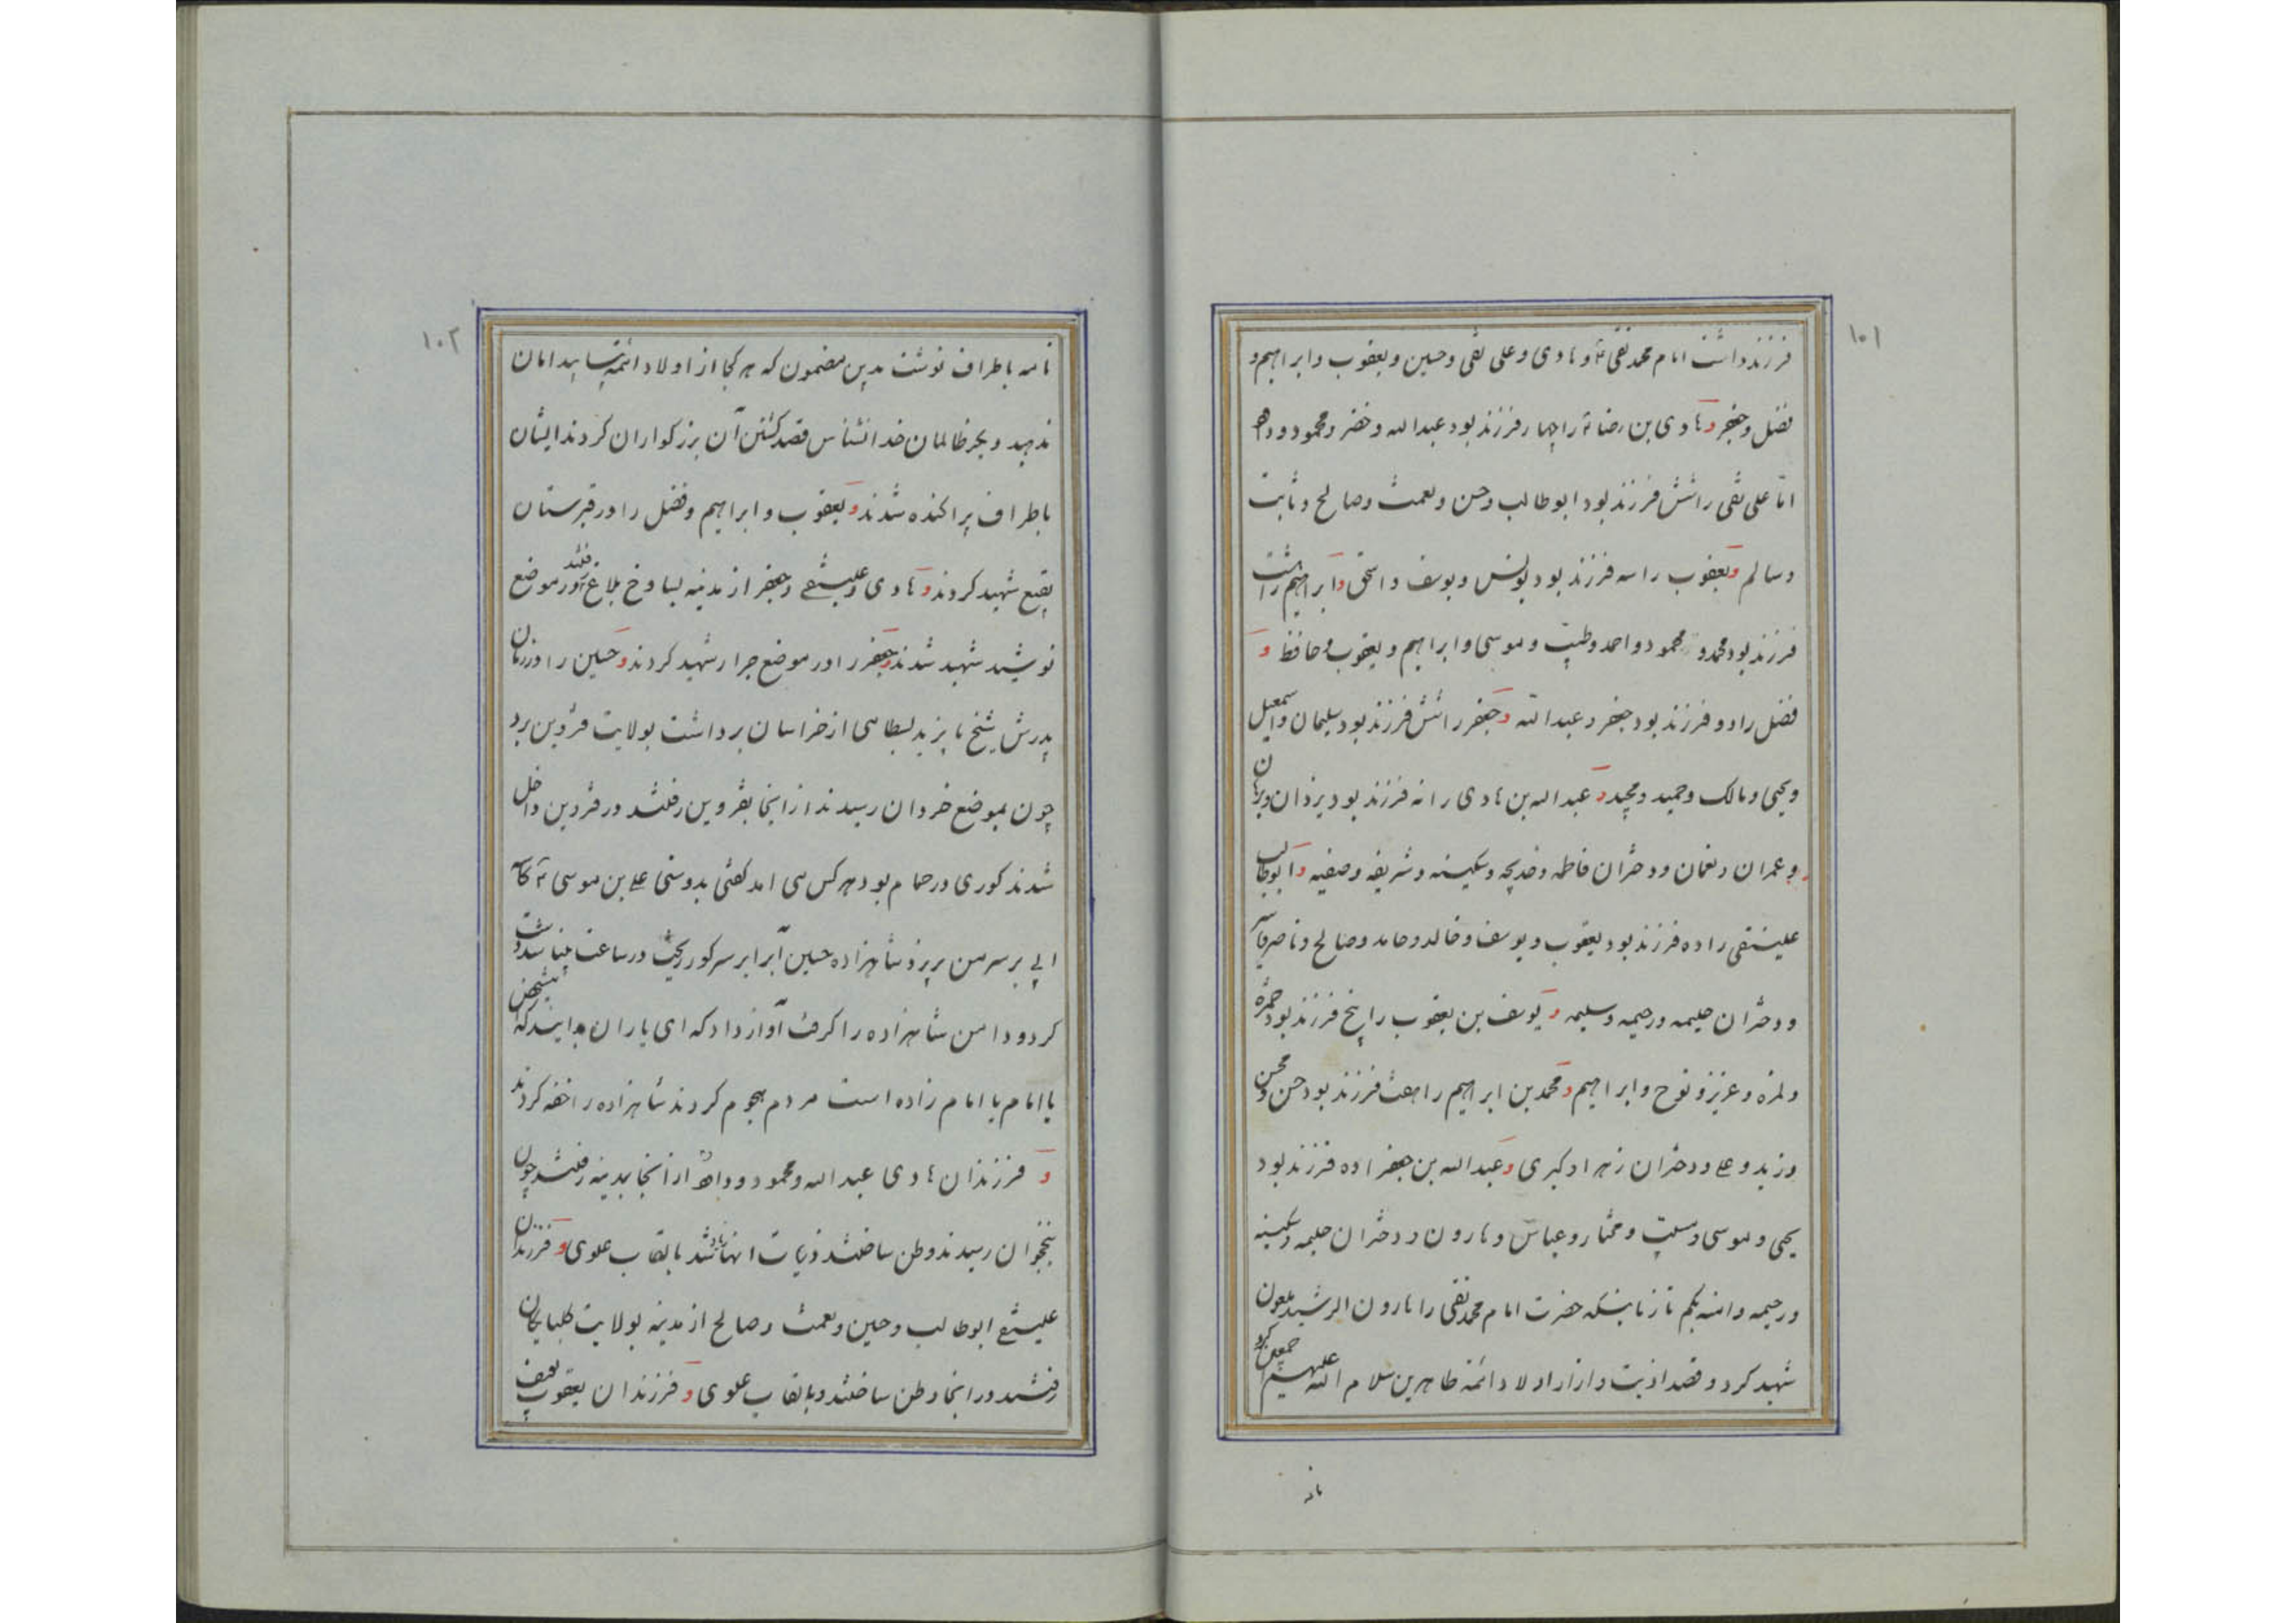 ۱۰۱
فرزند داشت امام محمد تقی ع و هادی و علی نقی و حسین و یعقوب و ابراهیم و
فضل و جعفر و هادی بن رضا ع را چهار فرزند بود عبدالله و خضر و محمود و ده
امّا علی نقی را شش فرزند بود ابوطالب و حسن و نعمت و صالح و ثابت
و سالم و یعقوب را سه فرزند بود یونس و یوسف و اسحق و ابراهیم را هشت
فرزند بود محمد و محمود و احمد و طیب و موسی و ابراهیم و یعقوب و حافظ و
فضل را دو فرزند بود جعفر و عبدالله و جعفر را شش فرزند بود سلیمان و اسمعیل
و یحیی و مالک و حمید و مجید و عبدالله بن هادی را نه فرزند بود یزدان و برهان
و عمران و نعمان و دختران فاطمه و خدیجه و سکینه و شریفه و صفیه و ابوطالب
علینقی را ده فرزند بود یعقوب و یوسف و خالد و حامد و صالح و ناصر
و دختران حلیمه و رحیمه و سلیمه و یوسف بن یعقوب را پنج فرزند بود حمزه
و لمزه و عزیز و نوح و ابراهیم و محمد بن ابراهیم را هفت فرزند بود حسن و محسن
و زید و علی و دختران زهرا و کبری و عبدالله بن جعفر را ده فرزند بود
یحیی و موسی و مسیب و مختار و عباس و هارون و دختران حلیمه و سکینه
و رحیمه و امنه بکم تا زمانیکه حضرت امام محمد تقی را هارون الرشید ملعون
شهید کرد و قصد اذیت و ازار اولاد ائمه طاهرین سلام الله علیهم اجمعین کرد
نامه
۱۰۲
نامه باطراف نوشت بدین مضمون که هر کجا از اولاد ائمه بیابید امان
ندهید و بحر ظالمان خدانشناس قصد کشتن آن بزرکواران کردند ایشان
باطراف پراکنده شدند و یعقوب و ابراهیم و فضل را در قبرستان
بقیع شهید کردند و هادی و علینقی و جعفر از مدینه بساوخ بلاغ رفتند در موضع
نوشید شهید شدند و جعفر را در موضع جرار شهید کردند و حسین را در زمان
پدرش شیخ بایزید بسطامی از خراسان برداشت بولایت قزوین برد
چون بموضع خردان رسیدند از انجا بقزوین رفتند در قزوین داخل
شدند کوری در حمام بود هر کس می امد کفتی بدوستی علی بن موسی ع
ابی بر سر من بریز شاهزاده حسین آب را بر سر کور ریخت در ساعت بینا شد
کرد و دامن شاهزاده را کرفت آواز داد که ای یاران بدانید که این شخص
یا امام یا امام زاده است مردم هجوم کردند شاهزاده را خفه کردند
و فرزندان هادی عبدالله و محمود و از انجا بمدینه رفتند چون
بنخجوان رسیدند وطن ساختند ذریات انها بالقاب علوی و فرزندان
علینقی ابوطالب و حسین و نعمت و صالح از مدینه بولایت کلپایکان
رفتند در انجا وطن ساختند و بالقاب علوی و فرزندان یعقوب